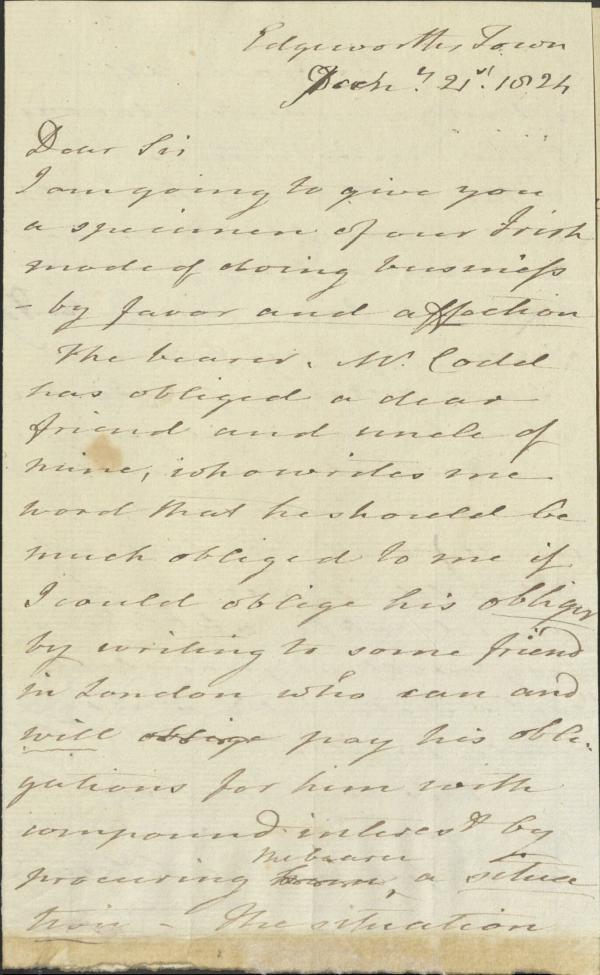 Edgeworths Town
Decbr. 21st. 1824
Dear Sir
I am going to give you
a specimen of our Irish
mode of doing business
- by favor and affection
The bearer. Mr. Codd
has obliged a dear
friend and uncle of
mine, who writes me
word that he should be
much obliged to me if
I could oblige his obliger
by writing to some friend
in London who can and
will oblige pay his obli-
gations for him with
compound interest by
the bearer
procuring a situa
tion - The situation